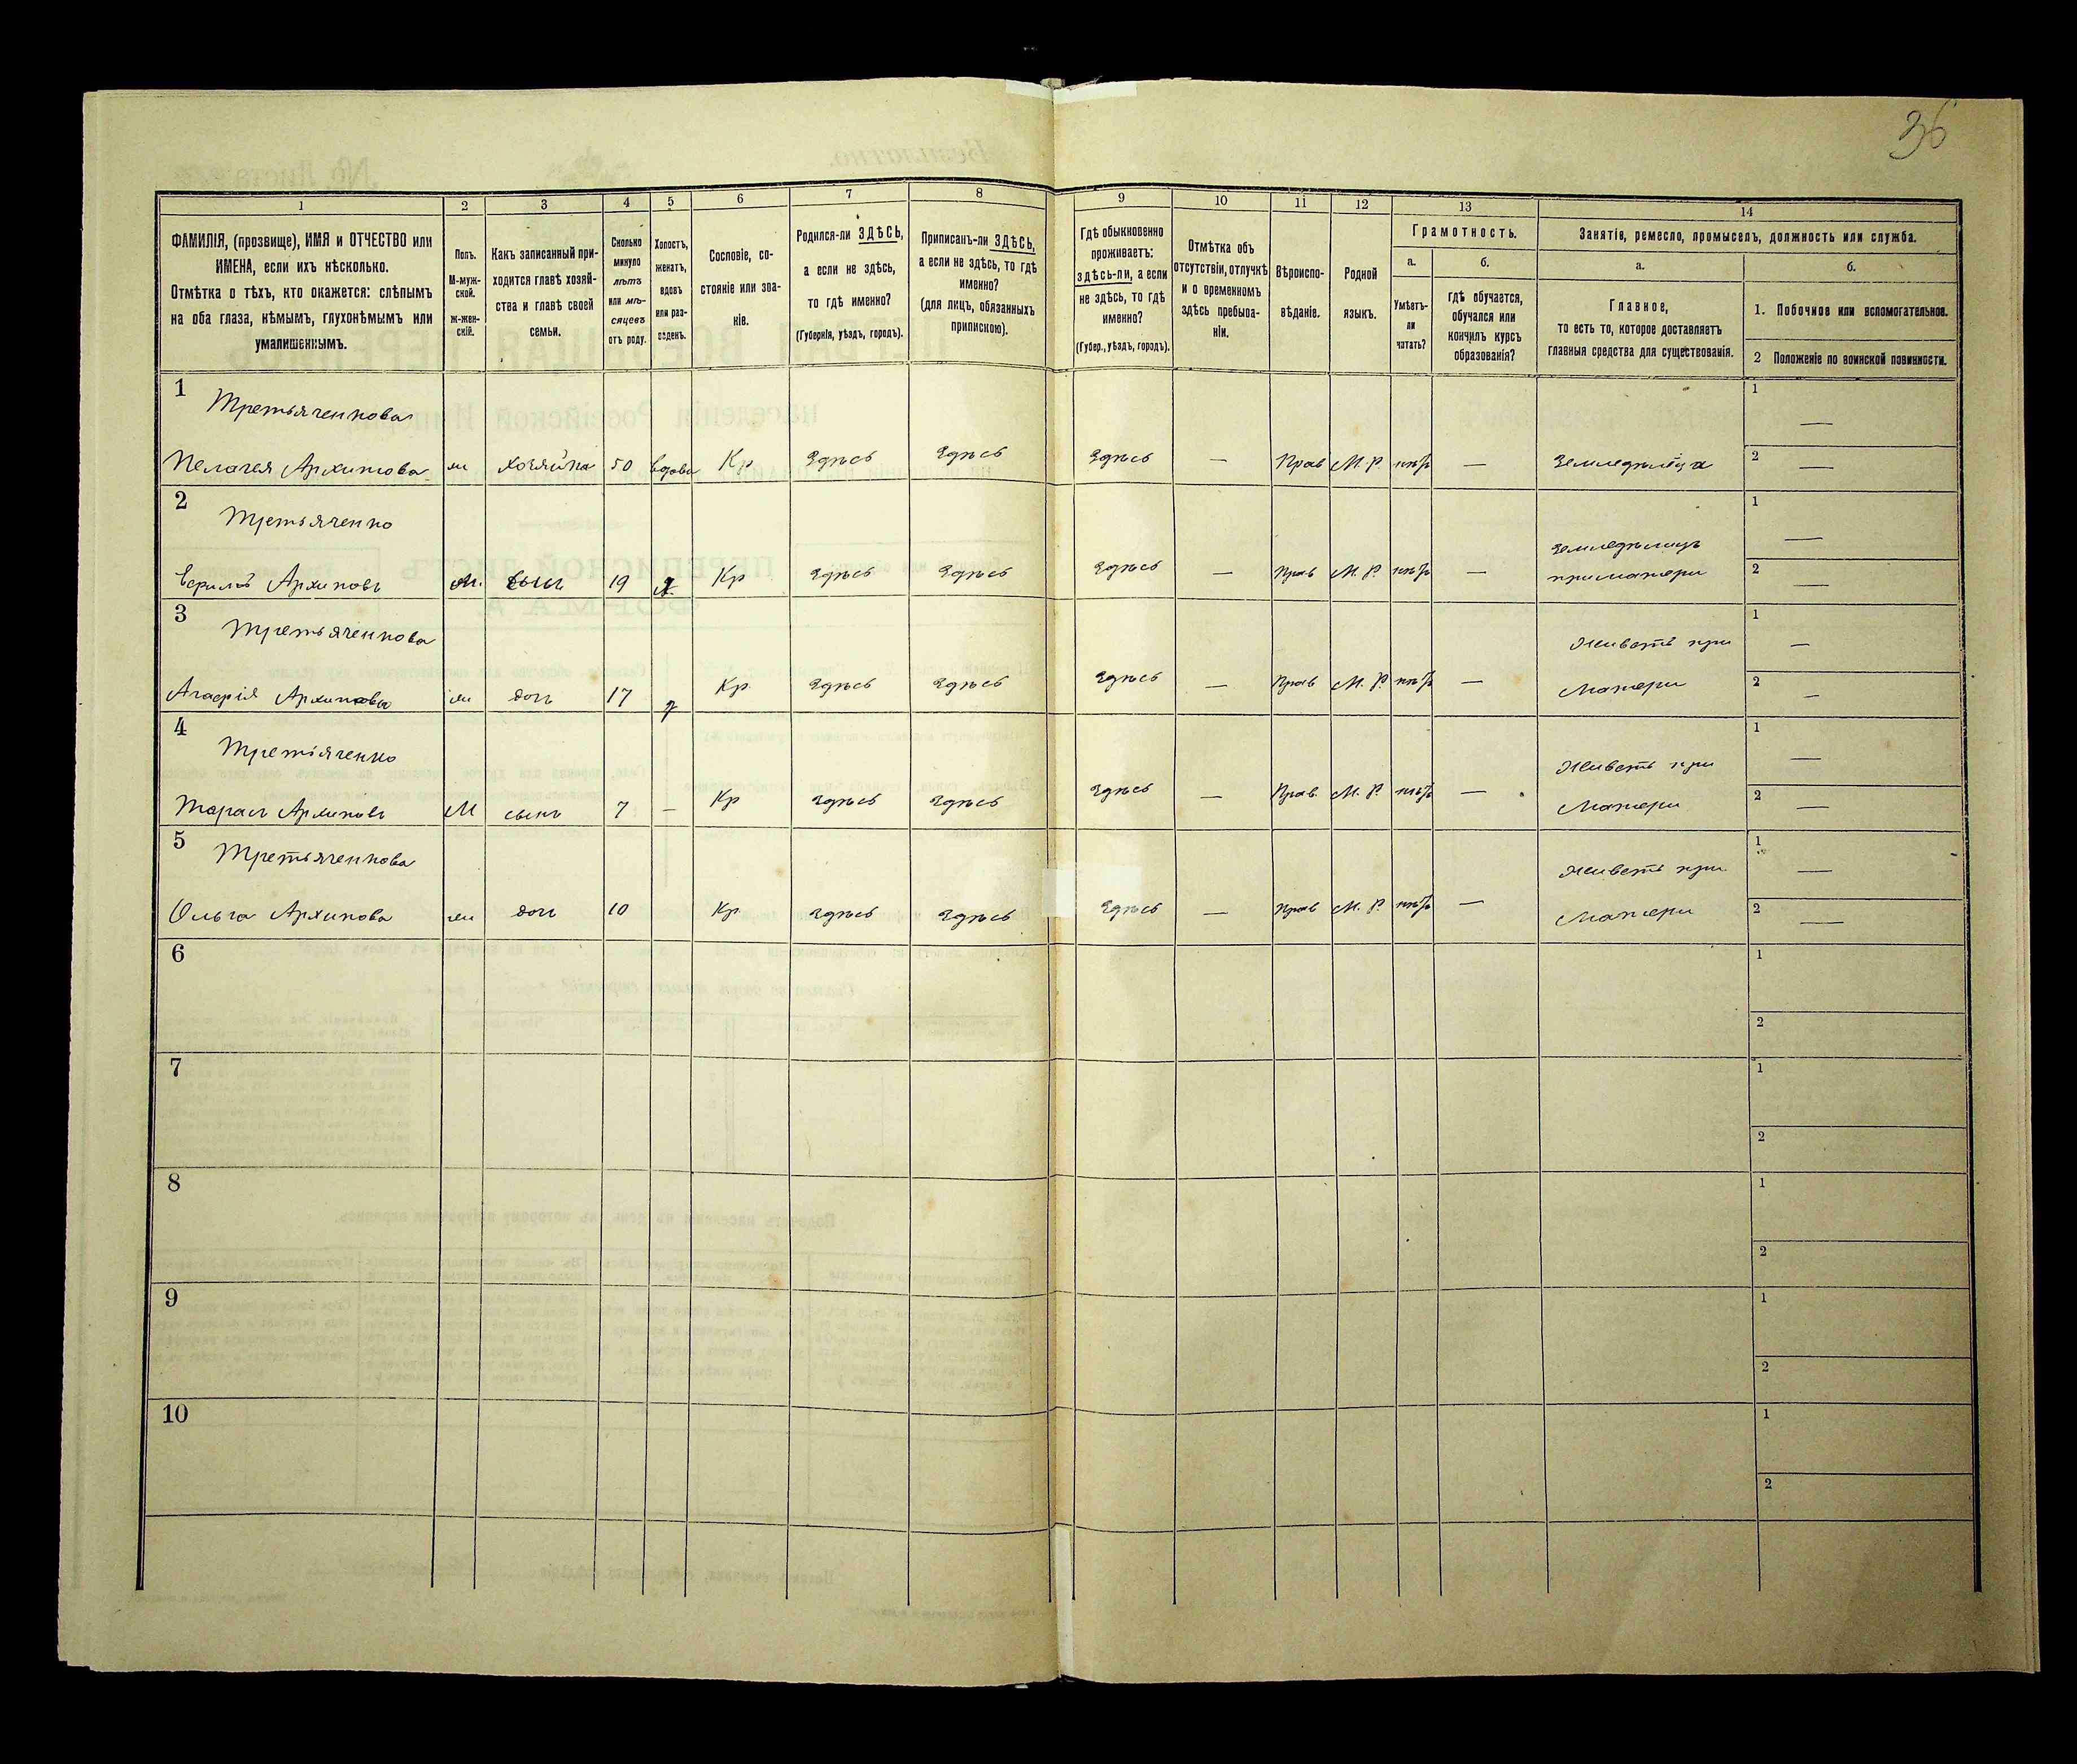 36
1 2 3 4 5 6 7 8 9 10 11 12 13 14
ФАМИЛІЯ, (прозвище), ИМЯ и ОТЧЕСТВО или
ИМЕНА, если ихъ нѣсколько.
Отмѣтка о тѣхъ, кто окажется: слѣпымъ
на оба глаза, нѣмымъ, глухонѣмымъ или
умалишеннымъ.
Полъ.
М-муж-
ской.
Ж-жен-
скій.
Какъ записанный при-
ходится главѣ хозяй-
ства и главѣ своей
семьи.
Сколько
минуло
лѣтъ
или мѣ-
сяцевъ
отъ роду.
Холостъ,
женатъ,
вдовъ
или раз-
веденъ.
Сословіе, со-
стояніе или зва-
ніе.
Родился-ли ЗДѢСЬ,
а если не здѣсь,
то гдѣ именно?
(Губернія, уѣздъ, городъ).
Приписанъ-ли ЗДѢСЬ,
а если не здѣсь, то гдѣ
именно?
(для лицъ, обязанныхъ
припискою).
Гдѣ обыкновенно
проживаетъ:
здѣсь-ли, а если
не здѣсь, то гдѣ
именно?
(Губер., уѣздъ, городъ).
Отмѣтка объ
отсутствіи, отлучкѣ
и о временномъ
здѣсь пребыва-
ніи.
Вѣроиспо-
вѣданіе.
Родной
языкъ.
Грамотность.
а.
Умѣетъ-
ли
читать?
б.
гдѣ обучается,
обучался или
кончилъ курсъ
образованія?
Занятіе, ремесло, промыселъ, должность или служба.
а.
Главное,
то есть то, которое доставляетъ
главныя средства для существованія.
б.
1. Побочное или вспомогательное.
2 Положеніе по воинской повинности.
1 Третьяченкова 1 —
Пелагея Архипова ж хозяйка 50 вдова Кр здѣсь здѣсь здѣсь — Прав М. Р. нѣтъ — 2 —
2 Третьяченко 1 —
земледѣлецъ
Архиповъ м. сынъ 19 х Кр здѣсь здѣсь здѣсь — Прав М. Р. нѣтъ — при матери 2 —
3 Третьяченкова Живетъ при 1 —
Агафія Архипова ж дочь 17 Кр здѣсь здѣсь здѣсь — Прав М. Р. нѣтъ — Матери 2 —
4 Третіяченко Живетъ при 1 —
Тарасъ Архиповъ М сынъ 7 — Кр здѣсь здѣсь здѣсь — Прав. М. Р. нѣтъ — Матери 2 —
5 Третьяченкова Живетъ при 1 —
Ольга Архипова ж дочь 10 Кр здѣсь здѣсь здѣсь — Прав М. Р. нѣтъ — Матери 2 —
6 1
2
7 1
2
8 1
2
9 1
2
10 1
2